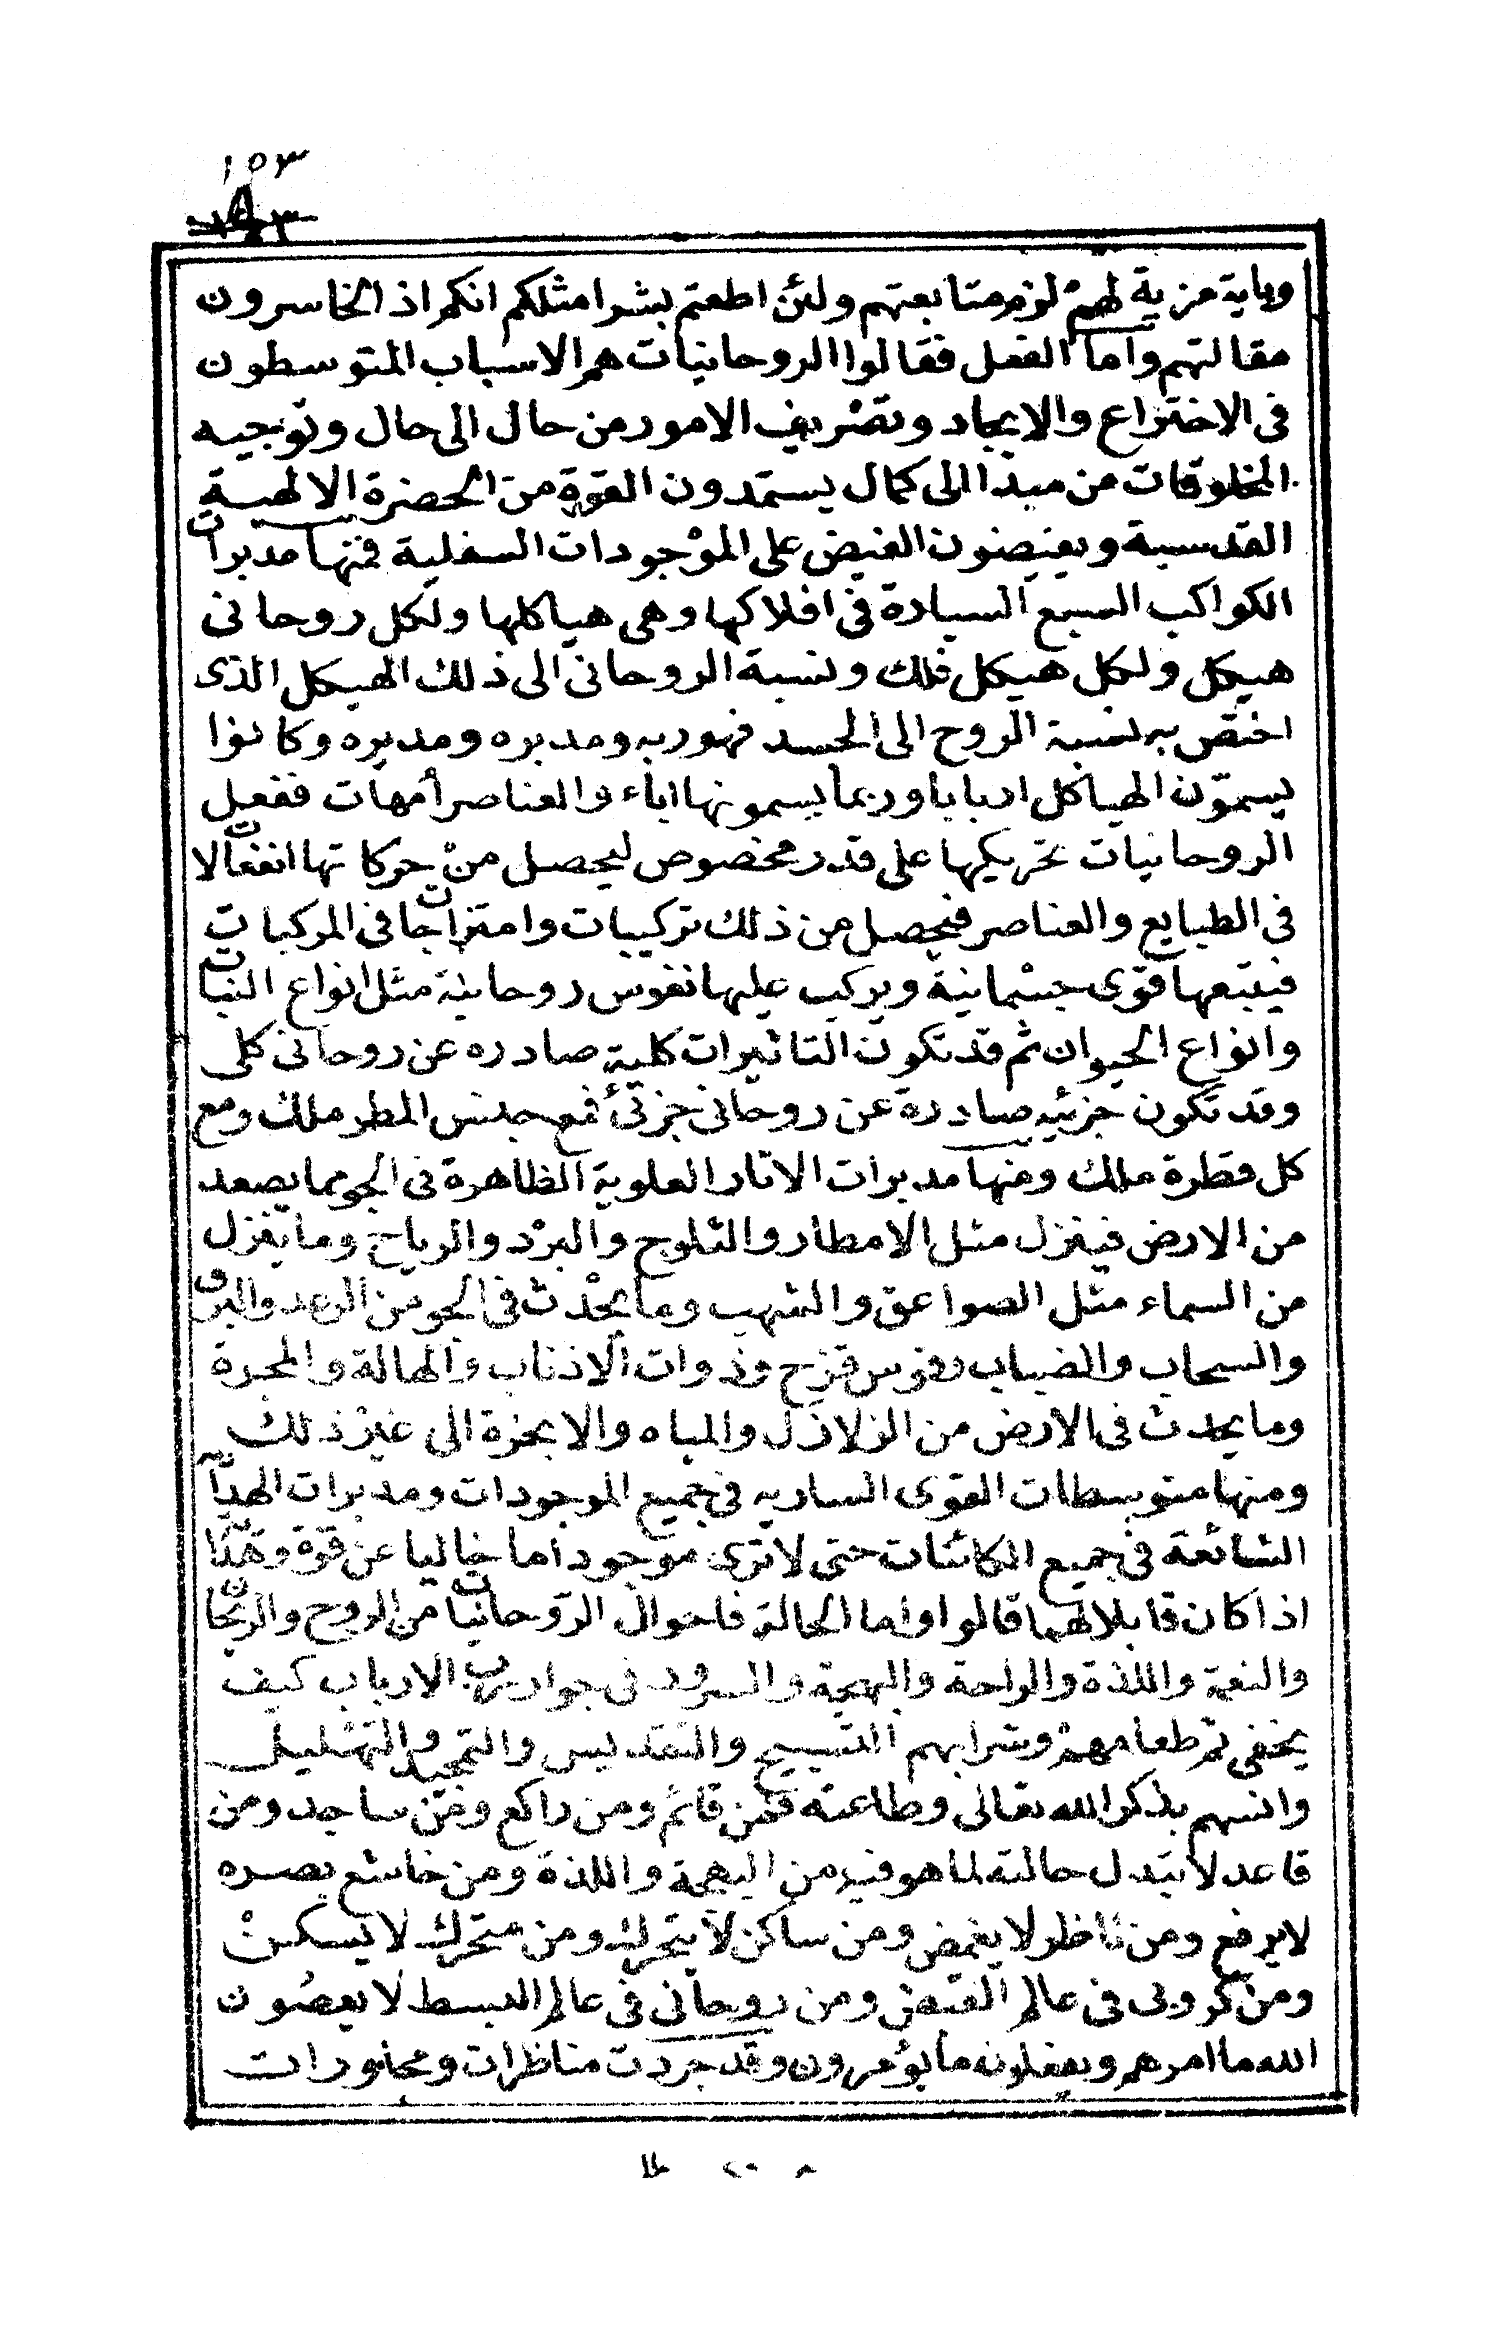 ١٥٣
وباية مزية لهم لزم متابعتهم ولئن اطعتم بشرا مثلكم انكم اذا لخاسرون
مقالتهم واما الفعل فقالوا الروحانيات هم الاسباب المتوسطون
فى الاختراع والايجاد وتصريف الامور من حال الى حال وتوجيه
المخلوقات من مبدا الى كمال يستمدون القوة من الحضرة الالهية
القدسية ويفيضون الفيض على الموجودات السفلية فمنها مدبرات
الكواكب السبع السيارة فى افلاكها وهى هياكلها ولكل روحانى
هيكل ولكل هيكل فلك ونسبة الروحانى الى ذلك الهيكل الذى
اختص به نسبة الروح الى الجسد فهو ربه ومدبره ومديره وكانوا
يسمون الهياكل اربابا وربما يسمونها اباء والعناصر أمهات ففعل
الروحانيات تحريكها على قدر مخصوص ليحصل من حركاتها انفعالات
فى الطبايع والعناصر فيحصل من ذلك تركيبات وامتزاجات فى المركبات
فيتبعها قوى جسمانية ويركب عليها نفوس روحانية مثل انواع النبات
وانواع الحيوان ثم قد تكون التاثيرات كلية صادره عن روحانى كلى
وقد تكون جزئيه صادرة عن روحانى جزئى فمع جنس المطر ملك ومع
كل قطرة ملك ومنها مدبرات الاثار العلوية الظاهرة فى الجو مما يصعد
من الارض فينزل مثل الامطار والثلوج والبرد والرياح وما ينزل
من السماء مثل الصواعق والشهب وما يحدث فى الجو من الرعد والبرق
والسحاب والضباب وقوس قزح وذوات الاذناب والهالة والمجرة
وما يحدث فى الارض من الزلازل والمياه والابخرة الى غير ذلك
ومنها متوسطات القوى الساريه فى جميع الموجودات ومدبرات الهداية
الشائعة فى جميع الكائنات حتى لا ترى موجودا ما خاليا عن قوة وهداية
اذا كان قابلا لهما قالوا واما الحالة فاحوال الروحانيات من الروح والريحان
والنعمة واللذة والراحة والبهجة والسرور فى جوار رب الارباب كيف
يخفى ثم طعامهم وشرابهم التسبيح والتقديس والتمجيد والتهليل
وانسهم بذكر الله تعالى وطاعته فمن قائم ومن راكع ومن ساجد ومن
قاعد لا تبدل حالته لما هو فيه من البهجة واللذة ومن خاشع بصره
لا يرفع ومن ناظر لا يغمض ومن ساكن لا يتحرك ومن متحرك لا يسكن
ومن كروبى فى عالم القبض ومن روحانى فى عالم البسط لا يعصون
الله ما امرهم ويفعلون ما يؤمرون وقد جردت مناظرات ومحاورات